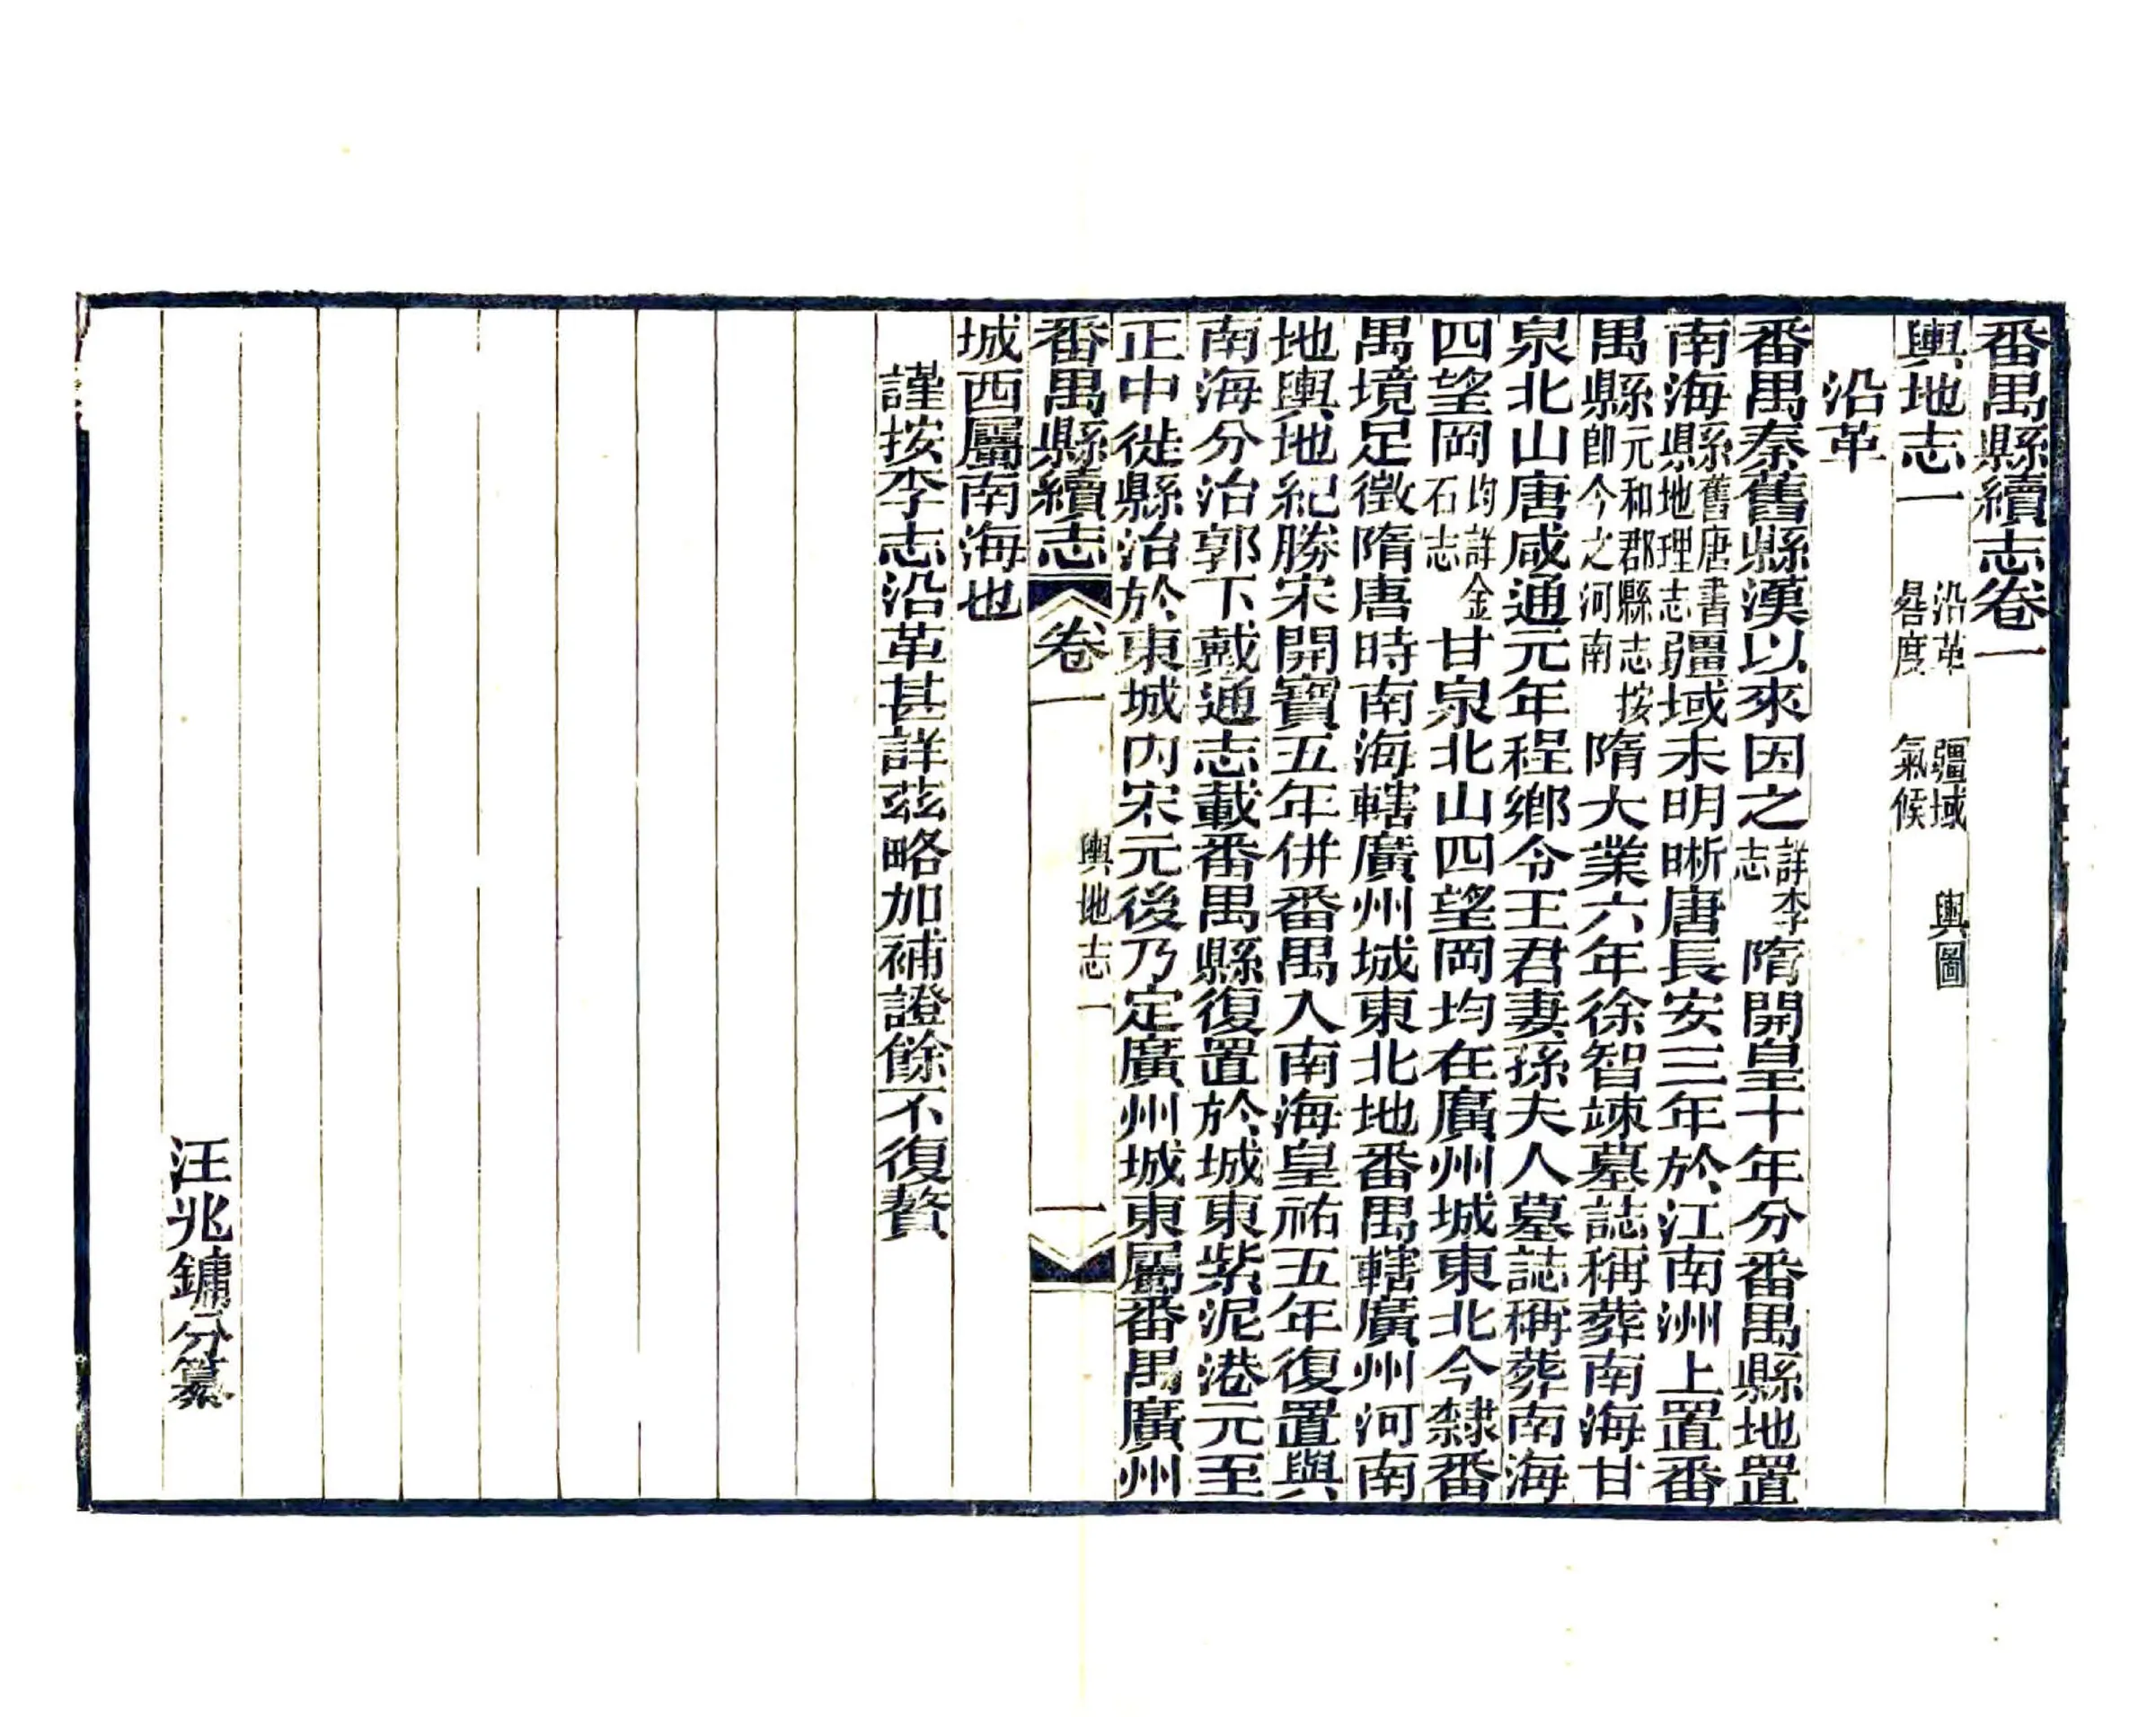 番禺縣續志卷一
輿地志一　沿革　疆域　輿圖　晷度　氣候
沿革
番禺秦舊縣漢以來因之詳李志隋開皇十年分番禺縣地置
南海縣舊唐書地理志疆域未明晰唐長安三年於江南洲上置番
禺縣元和郡縣志按卽今之河南隋大業六年徐智竦墓誌稱葬南海甘
泉北山唐咸通元年程鄉令王君妻孫夫人墓誌稱葬南海
四望岡均詳金石志甘泉北山四望岡均在廣州城東北今隸番
禺境足徵隋唐時南海轄廣州城東北地番禺轄廣州河南
地輿地紀勝宋開寶五年併番禺入南海皇祐五年復置與
南海分治郭下戴通志載番禺縣復置於城東紫泥港元至
正中徙縣治於東城內宋元後乃定廣州城東屬番禺廣州
番禺縣續志　卷一　輿地志一　一
城西屬南海也
謹按李志沿革甚詳茲略加補證餘不復贅
汪兆鏞分纂